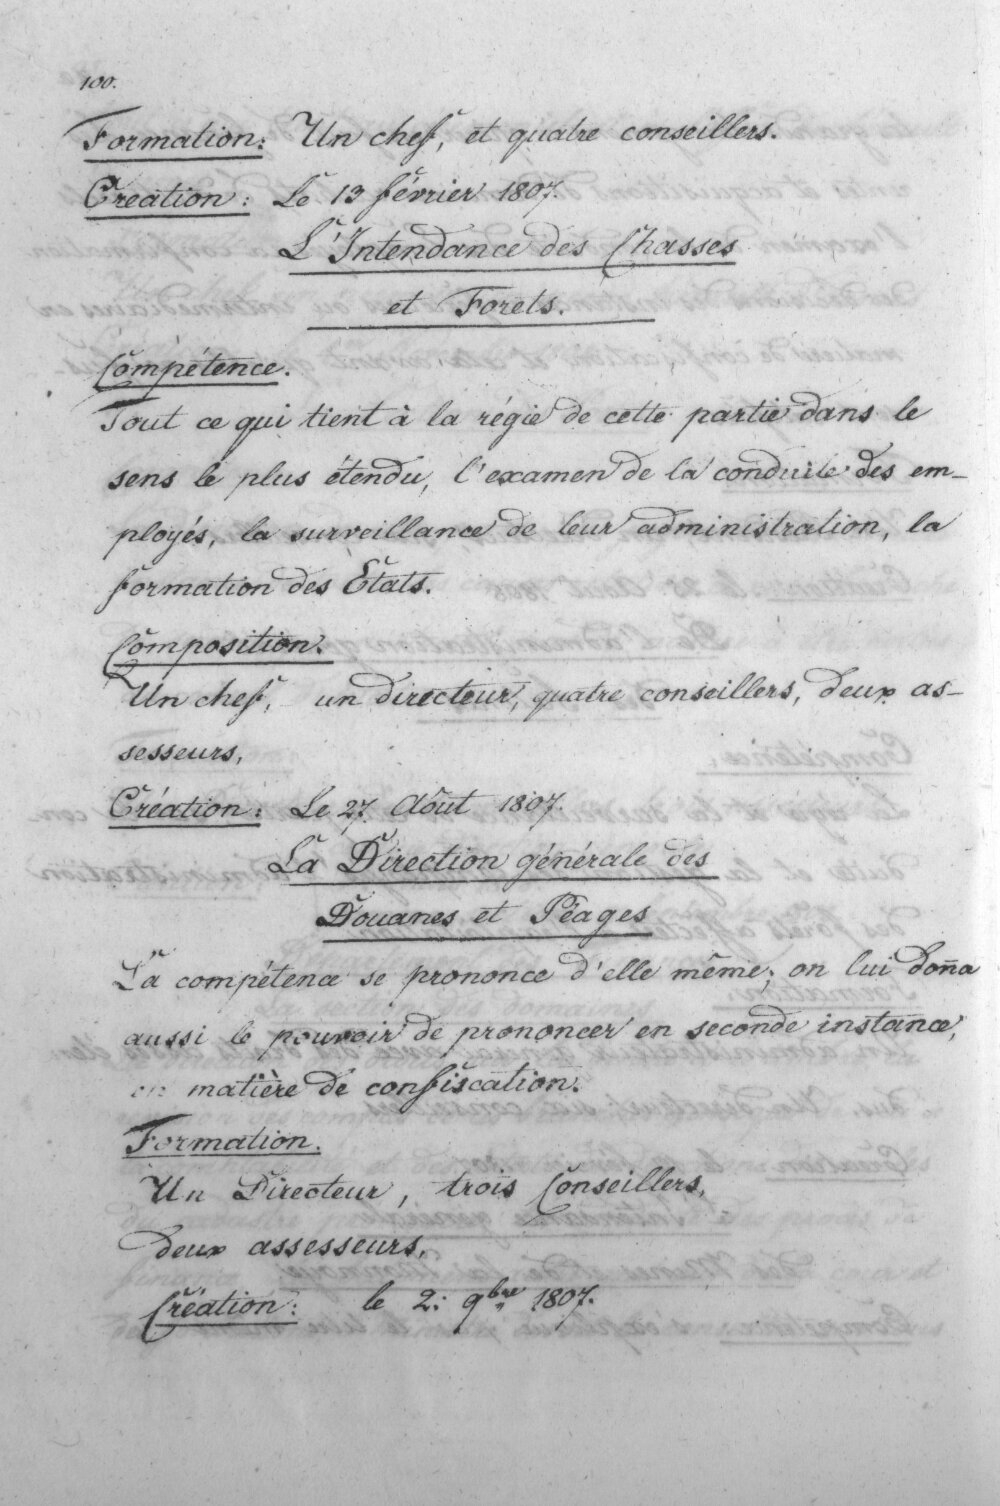 100.
Formation: Un chef, et quatre conseillers.
Création: Le 13 février 1807.
L'Intendance des Chasses
et Forets.
Compétence.
Tout ce qui tient à la régie de cette partie dans le
sens le plus étendu, l'examen de la conduite des em-
ployés, la surveillance de leur administration, la
formation des Etats.
Composition.
Un chef, un directeur, quatre conseillers, deux as-
sesseurs,
Création: Le 27 Août 1807.
La Direction générale des
Douanes et Péages
La compétence se prononce d'elle même; on lui doña
aussi le pouvoir de prononcer en seconde instance,
en matière de confiscation.
Formation.
Un Directeur, trois Conseillers,
deux assesseurs,
Création: le 2: 9bre 1807.